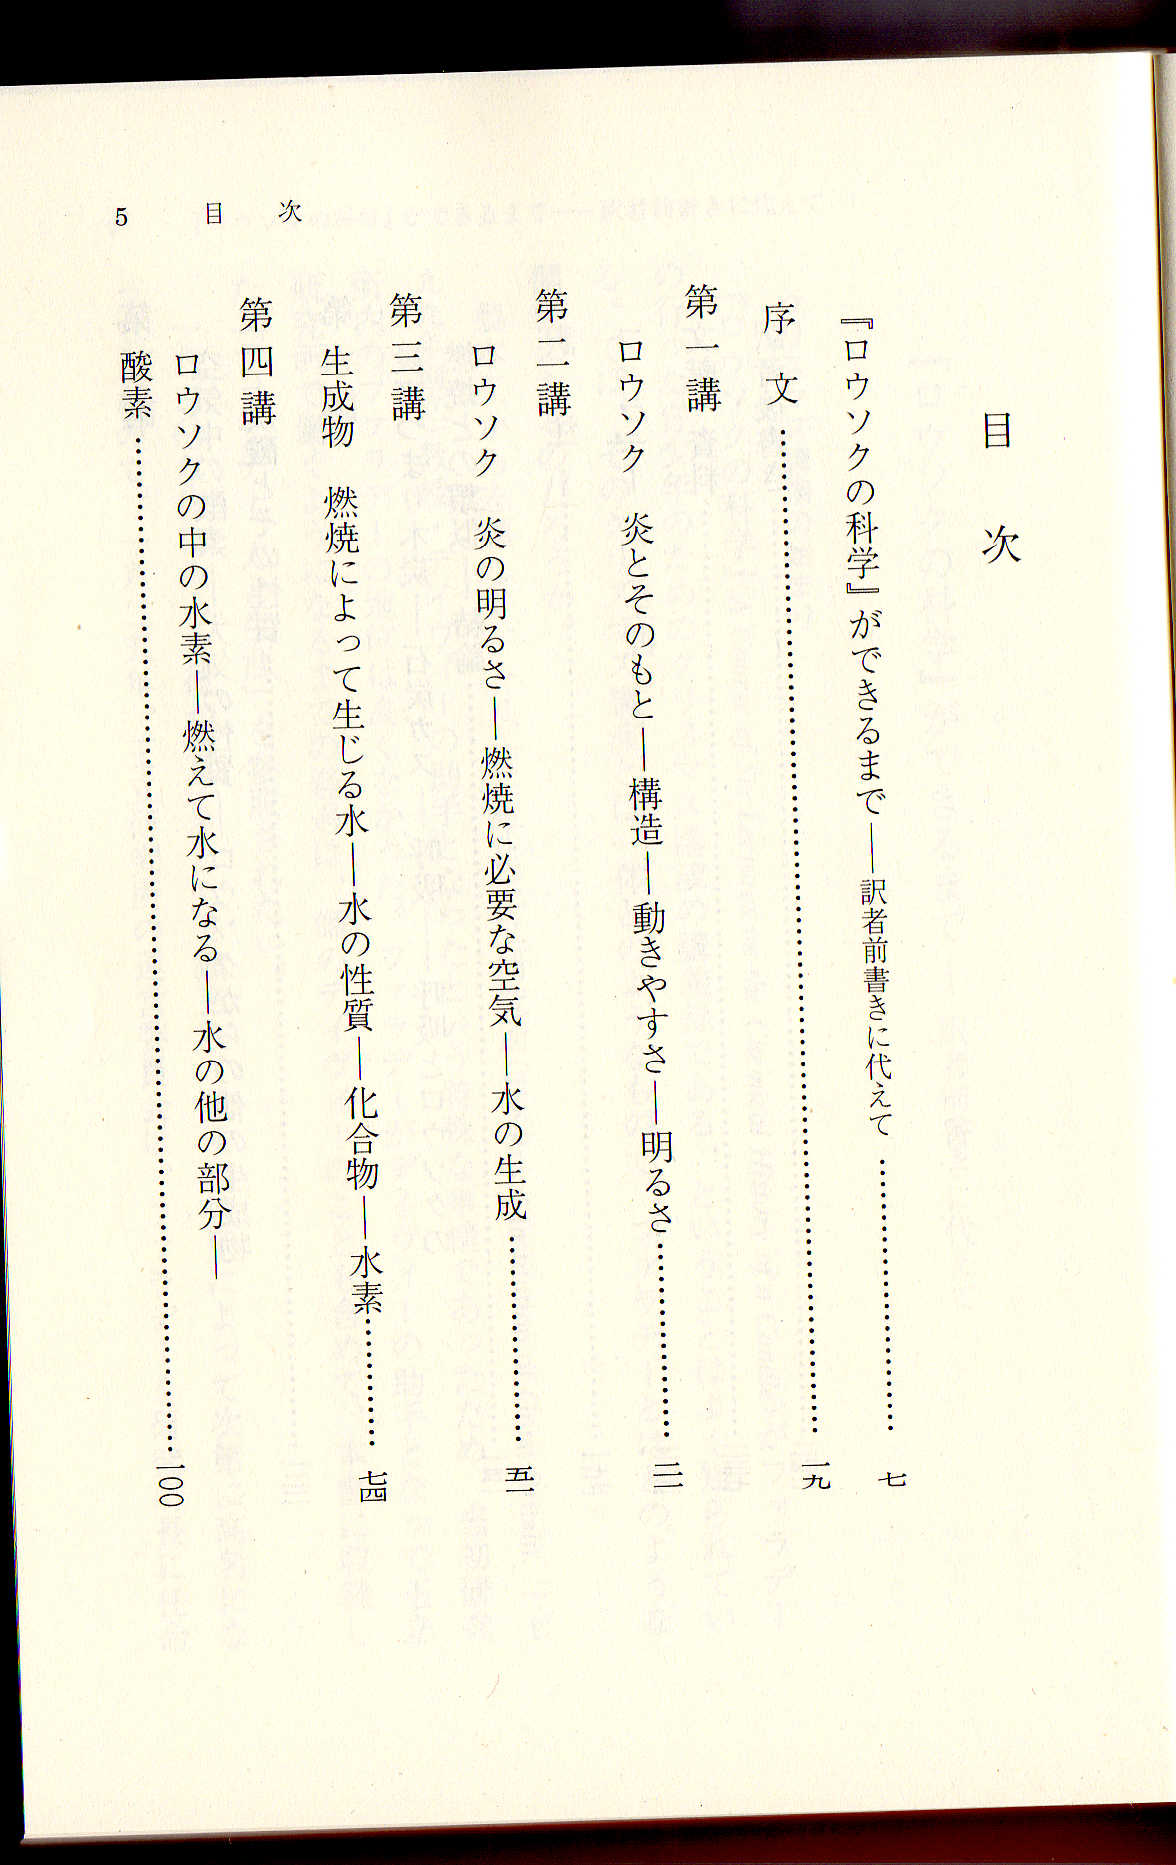 5 目次
目次
『ロウソクの科学』ができるまで――訳者前書きに代えて…………七
序文…………一九
第一講
ロウソク 炎とそのもと―構造―動きやすさ―明るさ…………二一
第二講
ロウソク 炎の明るさ―燃焼に必要な空気―水の生成…………五一
第三講
生成物 燃焼によって生じる水―水の性質―化合物―水素…………七四
第四講
ロウソクの中の水素―燃えて水になる―水の他の部分―
酸素…………一〇〇